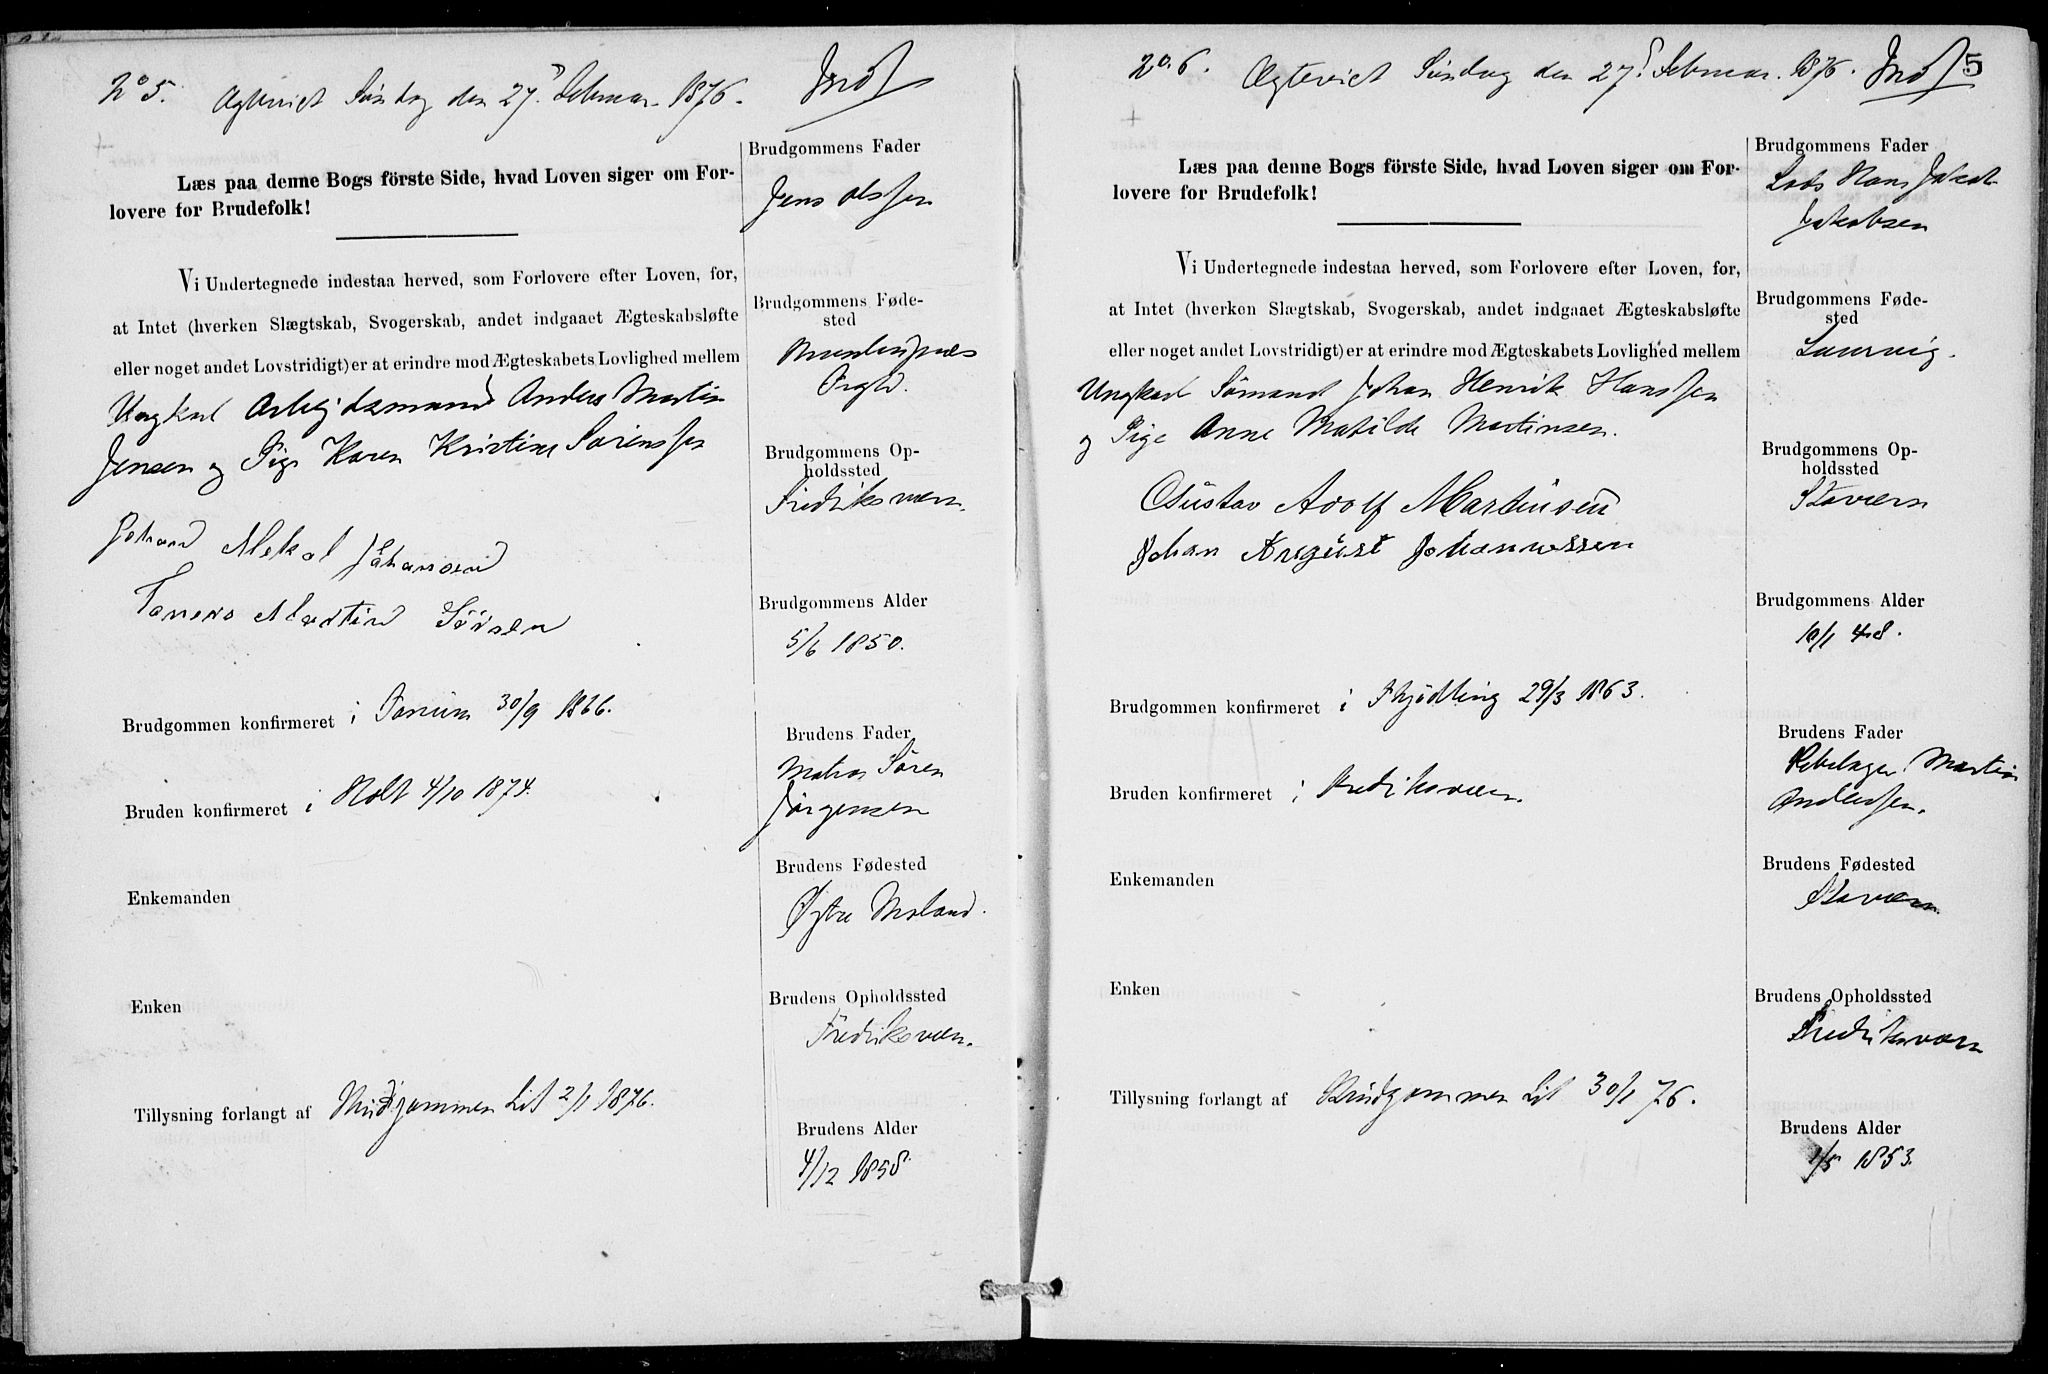 No 5. Ægteviet Søndag den 27de Februar 1876.
Læs paa denne Bogs förste Side, hvad Loven siger om For-
lovere for Brudefolk!
Vi Undertegnede indestaa herved, som Forlovere efter Loven, for,
at Intet (hverken Slægtskab, Svogerskab, andet indgaaet Ægteskabsløfte
eller noget andet Lovstridigt) er at erindre mod Ægteskabets Lovlighed mellem
Ungkarl Arbejdsmand Anders Martin
Jensen og Pige Karen Kristine Sørenssen
Johan Mekal Johansen
Martin
Brudgommen konfirmeret i 30/9 1866.
Bruden konfirmeret i Holt 4/10 1874.
Enkemanden
Enken
Tillysning forlangt af Brudgommen Lit 2/1 1876.
Brudgommens Fader
Jens Olssen
Brudgommens Føde-
sted
Brudgommens Op-
holdssted
Fredriksværn.
Brudgommens Alder
5/6 1850.
Brudens Fader
Matros Søren
Jørgensen
Brudens Fødested
Østre Moland.
Brudens Opholdssted
Fredriksværn.
Brudens Alder
4/12 1858.
No. 6. Ægteviet Søndag den 27de Februar 1876.
5
Læs paa denne Bogs förste Side, hvad Loven siger om For-
lovere for Brudefolk!
Vi Undertegnede indestaa herved, som Forlovere efter Loven, for,
at Intet (hverken Slægtskab, Svogerskab, andet indgaaet Ægteskabsløfte
eller noget andet Lovstridigt) er at erindre mod Ægteskabets Lovlighed mellem
Ungkarl Sømand Johan Henrik Hanssen
og Pige Anne Matilde Martinsen.
Gustav Adolf Martinsen
Johan August Johannessen
Brudgommen konfirmeret i Thjødling 29/3 1863.
Bruden konfirmeret i Fredriksværn.
Enkemanden
Enken
Tillysning forlangt af Brudgommen Lit 30/1 76.
Brudgommens Fader
Lods Hans Jakob
Jakobsen
Brudgommens Føde-
sted
Laurvig.
Brudgommens Op-
holdssted
Stavern
Brudgommens Alder
10/1 48.
Brudens Fader
Martin
Anderssen.
Brudens Fødested
Stavern.
Brudens Opholdssted
Fredriksværn
Brudens Alder
1/5 1853.